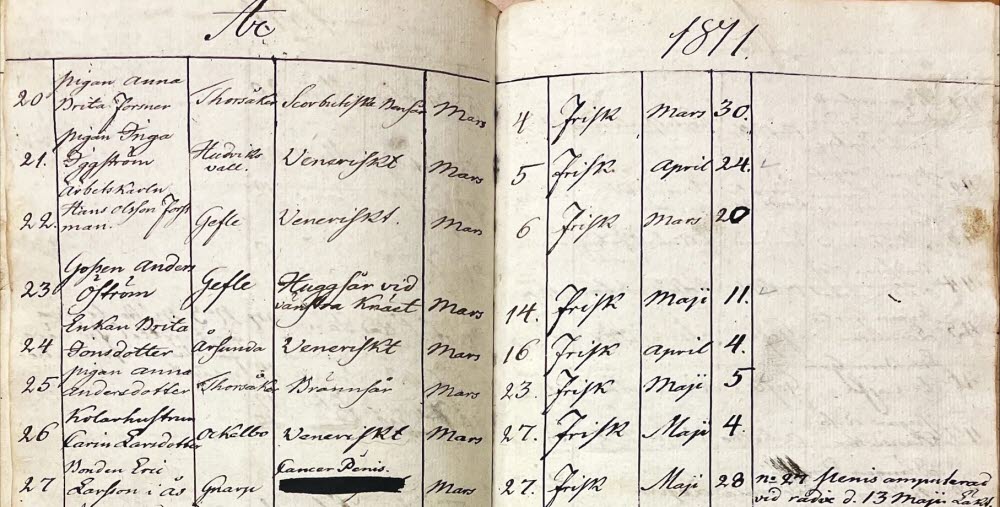 År
1811.
20 pigan Anna
Brita Forsner Thorsåker Scorbutiska Bensår Mars 4 Frisk Mars 30.
pigan Inga
21. Iggström Hudviks Veneriskt Mars 5 Frisk April 24.
vall.
Arbetskarln
22. Hans Olsson Forst Gefle Veneriskt. Mars 6 Frisk Mars 20
man.
Gossen Anders
23 Öström Gefle Huggsår vid Mars 14. Frisk Maji 11.
vänstra Knäet
Enkan Brita
24 Jonsdotter Årsunda Veneriskt Mars 16 Frisk April 4.
25 pigan Anna
Andersdotter Thorsåker Brännsår Mars 23. Frisk Maji 5
Kolarhustrun
26 Carin Larsdotter Ockelbo Veneriskt Mars 27. Frisk Maji 4.
Bonden Eric Cancer Penis.
27 Larsson i ås Gnarp Mars 27. Frisk Maji 28 no 27 penis amputerad
vid radix d. 13 Maji.